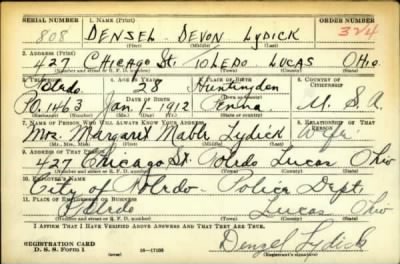 SERIAL NUMBER 1. NAME (Print) ORDER NUMBER
808 DENSEL DEVON LYDICK 324
(First) (Middle) (Last)
2. ADDRESS (Print)
427 CHICAGO St. TOLEDO LUCAS OHIO
(Number and street or R. F. D. number) (Town) (County) (State)
3. TELEPHONE 4. AGE IN YEARS 5. PLACE OF BIRTH 6. COUNTRY OF CITIZENSHIP
Toledo 28 Huntingdon
DATE OF BIRTH
PO. 1463 Jan. 1 - 1912 Penna. U. S. A.
7. NAME OF PERSON WHO WILL ALWAYS KNOW YOUR ADDRESS 8. RELATIONSHIP OF THAT PERSON
Mrs. Margaret Mable Lydick Wife
(Mr., Mrs., Miss) (First) (Middle) (Last)
9. ADDRESS OF THAT PERSON
427 Chicago St. Toledo Lucas Ohio
(Number and street or R. F. D. number) (Town) (County) (State)
10. EMPLOYER'S NAME
City of Toledo - Police Dept.
11. PLACE OF EMPLOYMENT OR BUSINESS
Toledo Lucas Ohio
(Number and street or R. F. D. number) (Town) (County) (State)
I AFFIRM THAT I HAVE VERIFIED ABOVE ANSWERS AND THAT THEY ARE TRUE.
REGISTRATION CARD
D. S. S. Form 1 16-17105 Denzel Lydick
(Registrant's signature)